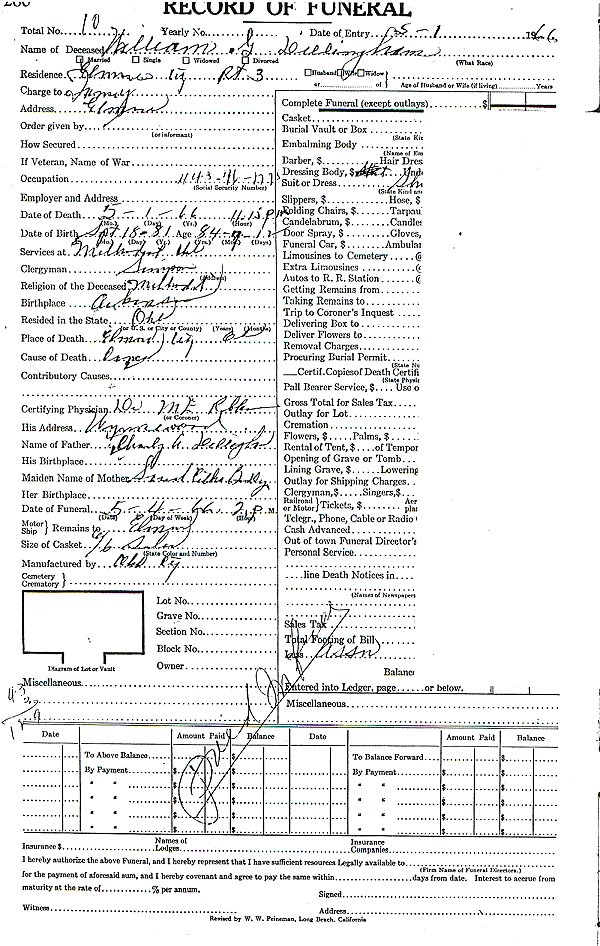 RECORD OF FUNERAL
Total No. 10 Yearly No. Date of Entry 5-1 1966
Name of Deceased William G Dillingham
Married Single Widowed Divorced (What Race)
Residence Elmore City Rt 3 Husband Wife Widow
or of Age of Husband or Wife (if living) Years
Charge to
Address Elmore
Order given by
(or informant)
How Secured
If Veteran, Name of War
Occupation
(Social Security Number)
Employer and Address
Date of Death 5-1-66
(Mo.) (Day) (Yr.) (Hour)
Date of Birth Age 84
(Mo.) (Day) (Yr.) (Yrs.) (Mos.) (Days)
Services at
Clergyman Simpson
Religion of the Deceased Methodist
Birthplace Arkansas
Resided in the State Okl
(or U. S. or City or County) (Years) (Months)
Place of Death Elmore City
Cause of Death
Contributory Causes
Certifying Physician Dr
(or Coroner)
His Address Wynnewood
Name of Father Charley
His Birthplace
Maiden Name of Mother Sarah
Her Birthplace
Date of Funeral 5-4-66 2 P.M.
(Date) (Day of Week) (Hour)
Motor Ship Remains to Elmore
Size of Casket 76
(State Color and Number)
Manufactured by
Cemetery
Crematory
Diagram of Lot or Vault
Lot No.
Grave No.
Section No.
Block No.
Owner
Miscellaneous
Complete Funeral (except outlays) $
Casket
Burial Vault or Box
(State Kin
Embalming Body
(Name of Em
Barber, $ Hair Dres
Dressing Body, $ Unde
Suit or Dress
(State Kind an
Slippers, $ Hose, $
Folding Chairs, $ Tarpau
Candelabrum, $ Candle
Door Spray, $ Gloves,
Funeral Car, $ Ambula
Limousines to Cemetery
Extra Limousines
Autos to R. R. Station
Getting Remains from
Taking Remains to
Trip to Coroner's Inquest
Delivering Box to
Deliver Flowers to
Removal Charges
Procuring Burial Permit
(State No
Certif. Copies of Death Certifi
(State Physic
Pall Bearer Service, $ Use o
Gross Total for Sales Tax
Outlay for Lot
Cremation
Flowers, $ Palms, $
Rental of Tent, $ of Tempor
Opening of Grave or Tomb
Lining Grave, $ Lowering
Outlay for Shipping Charges
Clergyman, $ Singers, $
Railroad or Motor Tickets, $ Aer pla
Telegr., Phone, Cable or Radio
Cash Advanced
Out of town Funeral Director's
Personal Service
line Death Notices in
(Names of Newspapers
Sales Tax
Total Footing of Bill
Less Assn
Balance
Entered into Ledger, page or below.
Miscellaneous
Date Amount Paid Balance Date Amount Paid Balance
To Above Balance $ To Balance Forward $
By Payment $ $ By Payment $ $
" " $ $ " " $ $
" " $ $ " " $ $
" " $ $ " " $ $
" " $ $ " " $ $
Insurance $ Names of Lodges Insurance Companies
I hereby authorize the above Funeral, and I hereby represent that I have sufficient resources Legally available to
(Firm Name of Funeral Directors.)
for the payment of aforesaid sum, and I hereby covenant and agree to pay the same within days from date. Interest to accrue from
maturity at the rate of % per annum. Signed
Witness Address
Revised by W. W. Prineman, Long Beach, California